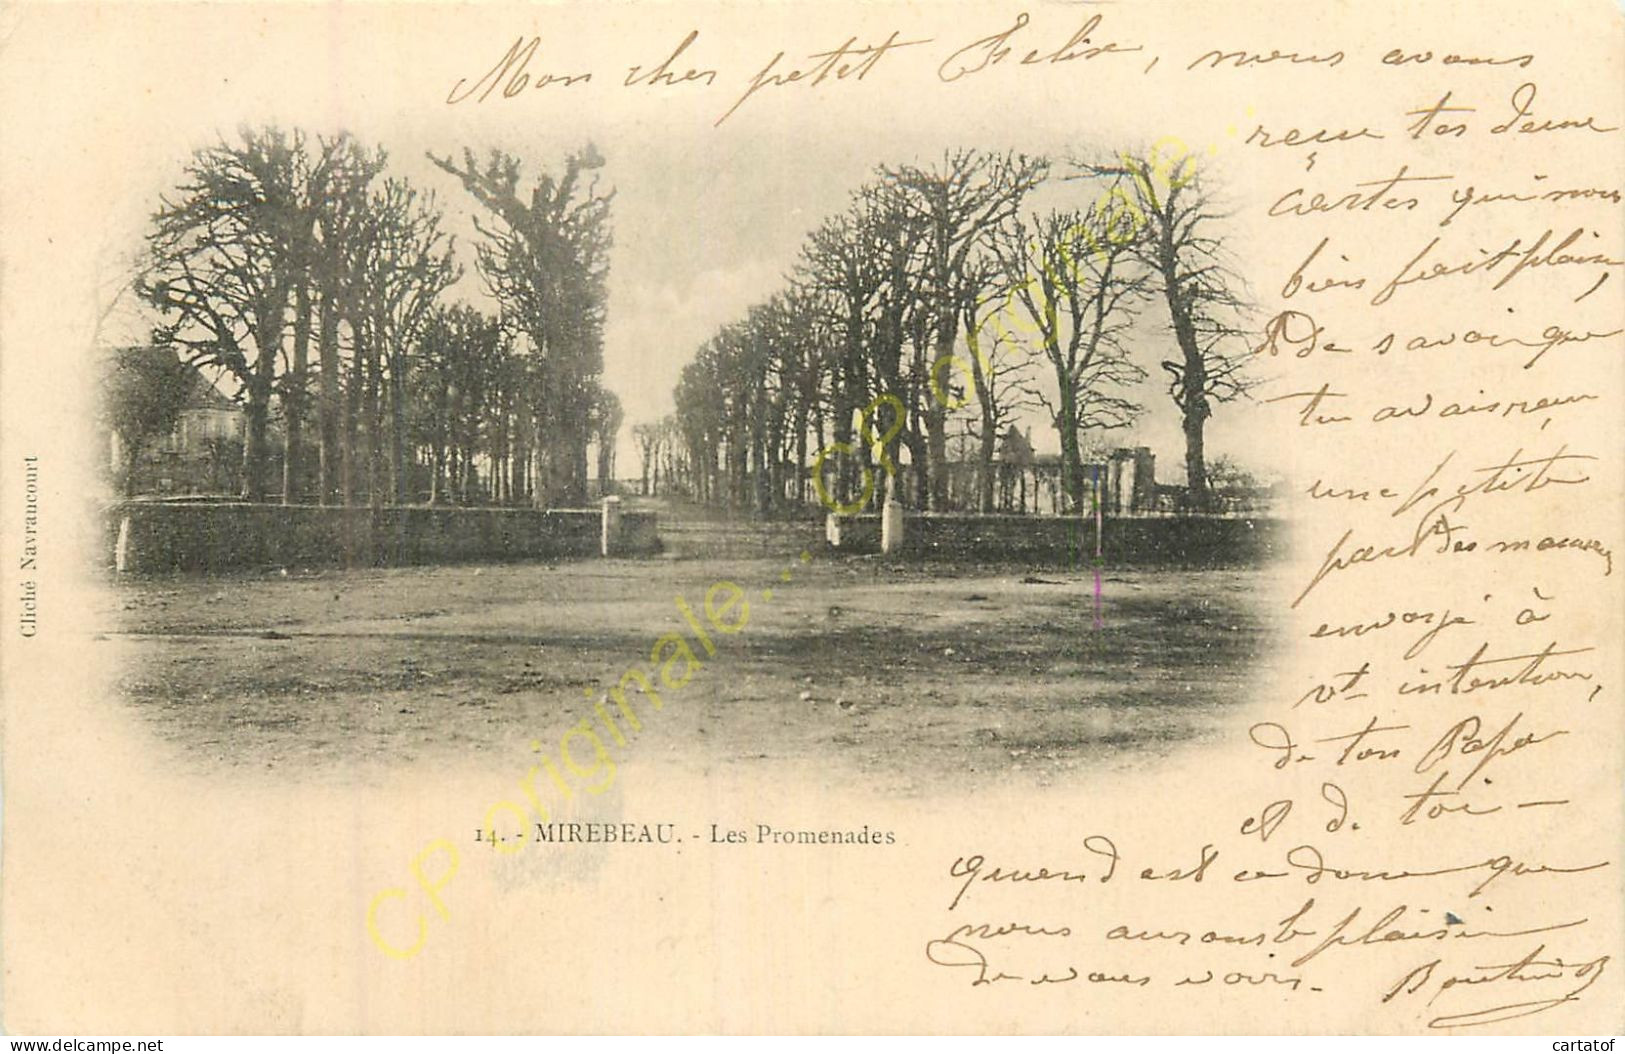 Mon cher petit Felix, nous avons
reçu tes deux
cartes qui nous
bien fait plaisir,
et de savoir que
tu avais reçu
une petite
part des
envoyé à
vt intention,
de ton Papa
et de toi -
quand est ce donc que
nous aurons le plaisir
de vous voir.
Cliché Navrancourt
14. - MIREBEAU. - Les Promenades
CP originale... CP originale...
delcampe.net
cartatof